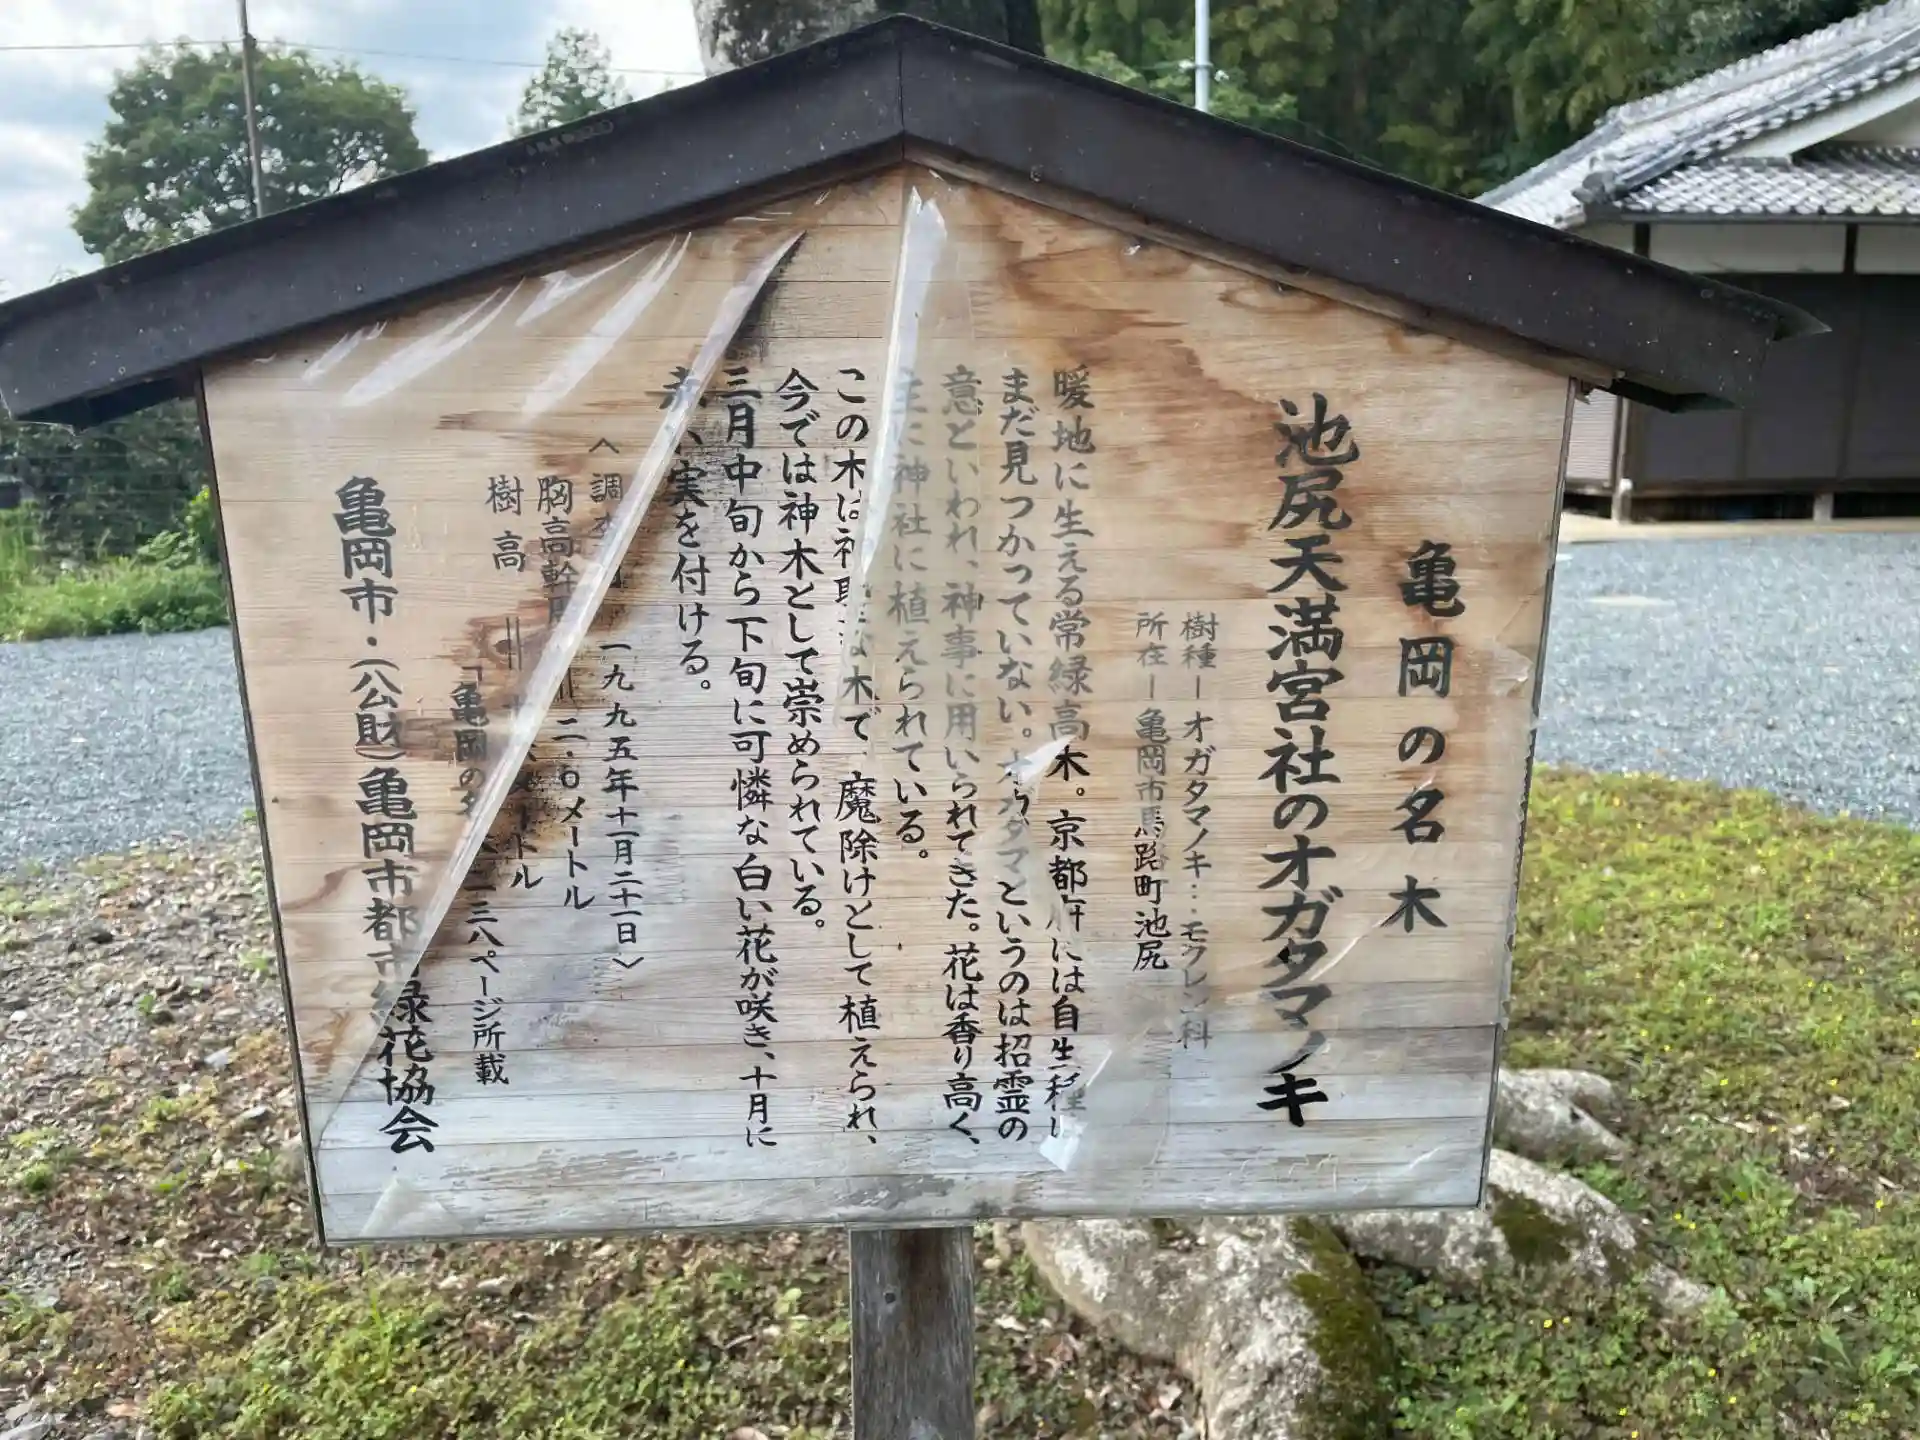 亀岡の名木
池尻天満宮社のオガタマノキ
樹種ーオガタマノキ…モクレン科
所在ー亀岡市馬路町池尻
暖地に生える常緑高木。京都府には自生種は
まだ見つかっていない。オガタマというのは招霊の
意といわれ、神事に用いられてきた。花は香り高く、
主に神社に植えられている。
この木は神聖な木で、魔除けとして植えられ、
今では神木として崇められている。
三月中旬から下旬に可憐な白い花が咲き、十月に
赤い実を付ける。
〈調査 一九九五年十一月二十一日〉
胸高幹周＝二.〇メートル
樹高＝十 メートル
「亀岡の名 三八ページ所載
亀岡市・(公財)亀岡市都市緑花協会